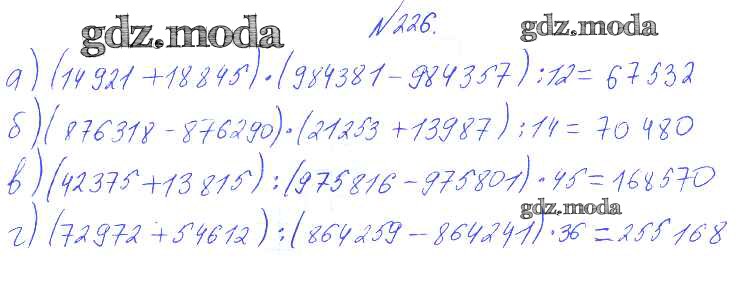 №226.
gdz.moda gdz.moda
а) (14921+18845)·(984381-984357):12=67532
б) (876318-876290)·(21253+13987):14=70480
в) (42375+13815):(975816-975801)·45=168570
gdz.moda
г) (72972+54612):(864259-864241)·36=255168